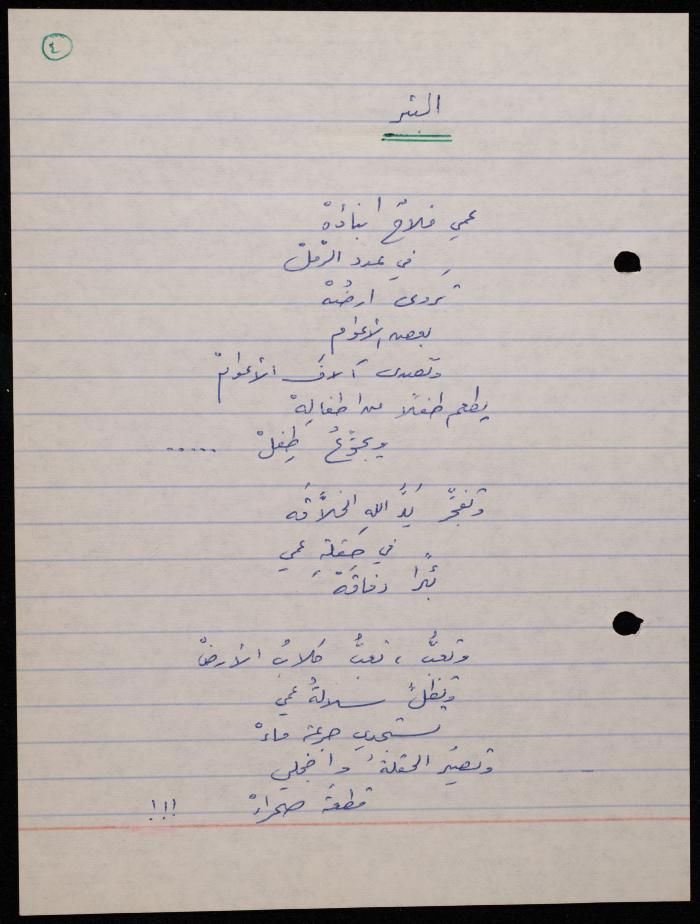 ٤
البئر
عمي فلاحٌ ابناؤهْ
في عدد الرّملْ
تروى ارضُهْ
بعض الأعوام
وتصدى آلافَ الأعوامْ
يطعم طفلًا من اطفالِهْ
ويجوّعُ طِفلْ ......
وتفجّر يَدُ اللهِ الخلاَّقَه
في حقلةِ عمي
بئرًا دفاقَهْ
وتعبُّ ، تعبُّ كلابُ الأرضْ
وتظلُّ سلالةُ عمي
تستجدي جرعة ماءْ
وتصيَر الحقلةُ واخجلي
قطعةَ صحراءْ !!!